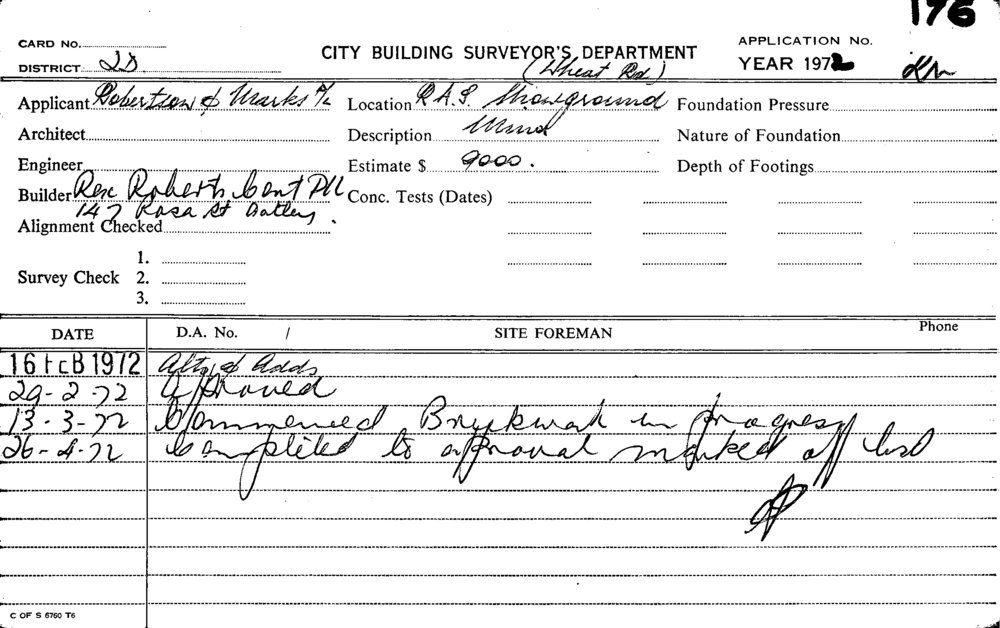 176
CARD No.
DISTRICT 2D
CITY BUILDING SURVEYOR'S DEPARTMENT
(Wheat Rd)
APPLICATION No.
YEAR 1972
Applicant Robertson & Marks P/L
Location R.A.S. Showground
Foundation Pressure
Architect
Description Minor
Nature of Foundation
Engineer
Estimate $ 9000.
Depth of Footings
Builder Rex Roberts Cont P/L
147 Rosa St Oatley.
Conc. Tests (Dates)
Alignment Checked
Survey Check 1.
2.
3.
DATE D.A. No. / SITE FOREMAN Phone
16 FEB 1972 Alts & Adds
29-2-72 Approved
13-3-72 Commenced Brickwork in progress
26-4-72 Completed to approval marked off list
C OF S 6760 T6